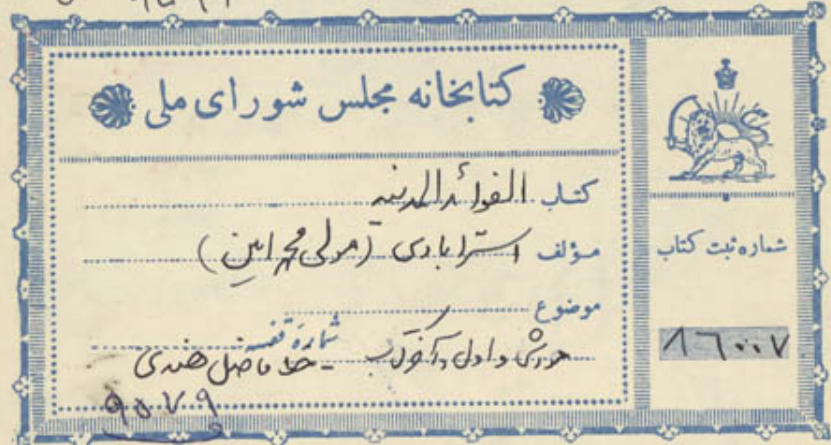 کتابخانه مجلس شورای ملی
کتاب الفوائد المدنیه
مؤلف استرابادی (مولی محمد امین)
موضوع
شماره قفسه
و اول و آخر کتاب خط فاضل هندی
۹۵۷۹
شماره ثبت کتاب
۸۶۰۰۷